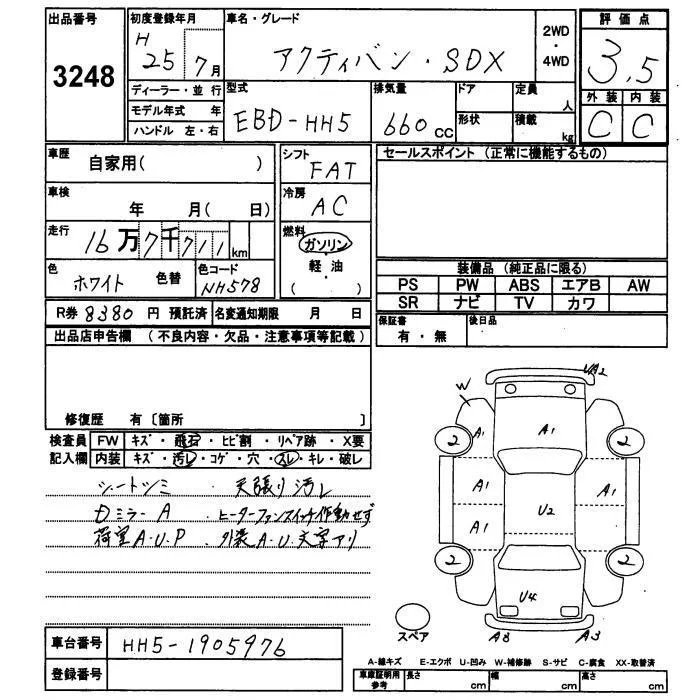 出品番号
3248
初度登録年月
H
25 7月
ディーラー・並行
モデル年式 年
ハンドル 左・右
車名・グレード
アクティバン・SDX
2WD
・
4WD
評価点
3.5
外装 内装
C C
型式
EBD-HH5
排気量
660 cc
ドア
形状
定員
人
積載
kg
車歴
自家用( )
シフト
FAT
車検
年 月( 日)
冷房
AC
走行
16万7千711km
燃料
ガソリン
軽・油
( )
色
ホワイト 色替
色コード
NH578
セールスポイント (正常に機能するもの)
装備品 (純正品に限る)
PS PW ABS エアB AW
SR ナビ TV カワ
R券 8380 円 預託済 名変通知期限 月 日
保証書
有・無
後日品
出品店申告欄 (不良内容・欠品・注意事項等記載)
修復歴 有〔箇所 〕
検査員 FW キズ・飛石・ヒビ割・リペア跡・X要
記入欄 内装 キズ・汚レ・コゲ・穴・スレ・キレ・破レ
シートシミ・天張り汚レ
Dミラー A ・ヒーターファンスイッチ作動せず
荷室A.U.P ・外装A.U.文字アリ
UA2
W
2 A1 A1 2
A1 A1
U2
A1
2 2
U4
A3 A3
スペア
車台番号 HH5-1905976
登録番号
A-線キズ E-エクボ U-凹み W-補修跡 S-サビ C-腐食 XX-取替済
車庫証明用
参考
長さ cm 幅 cm 高さ cm